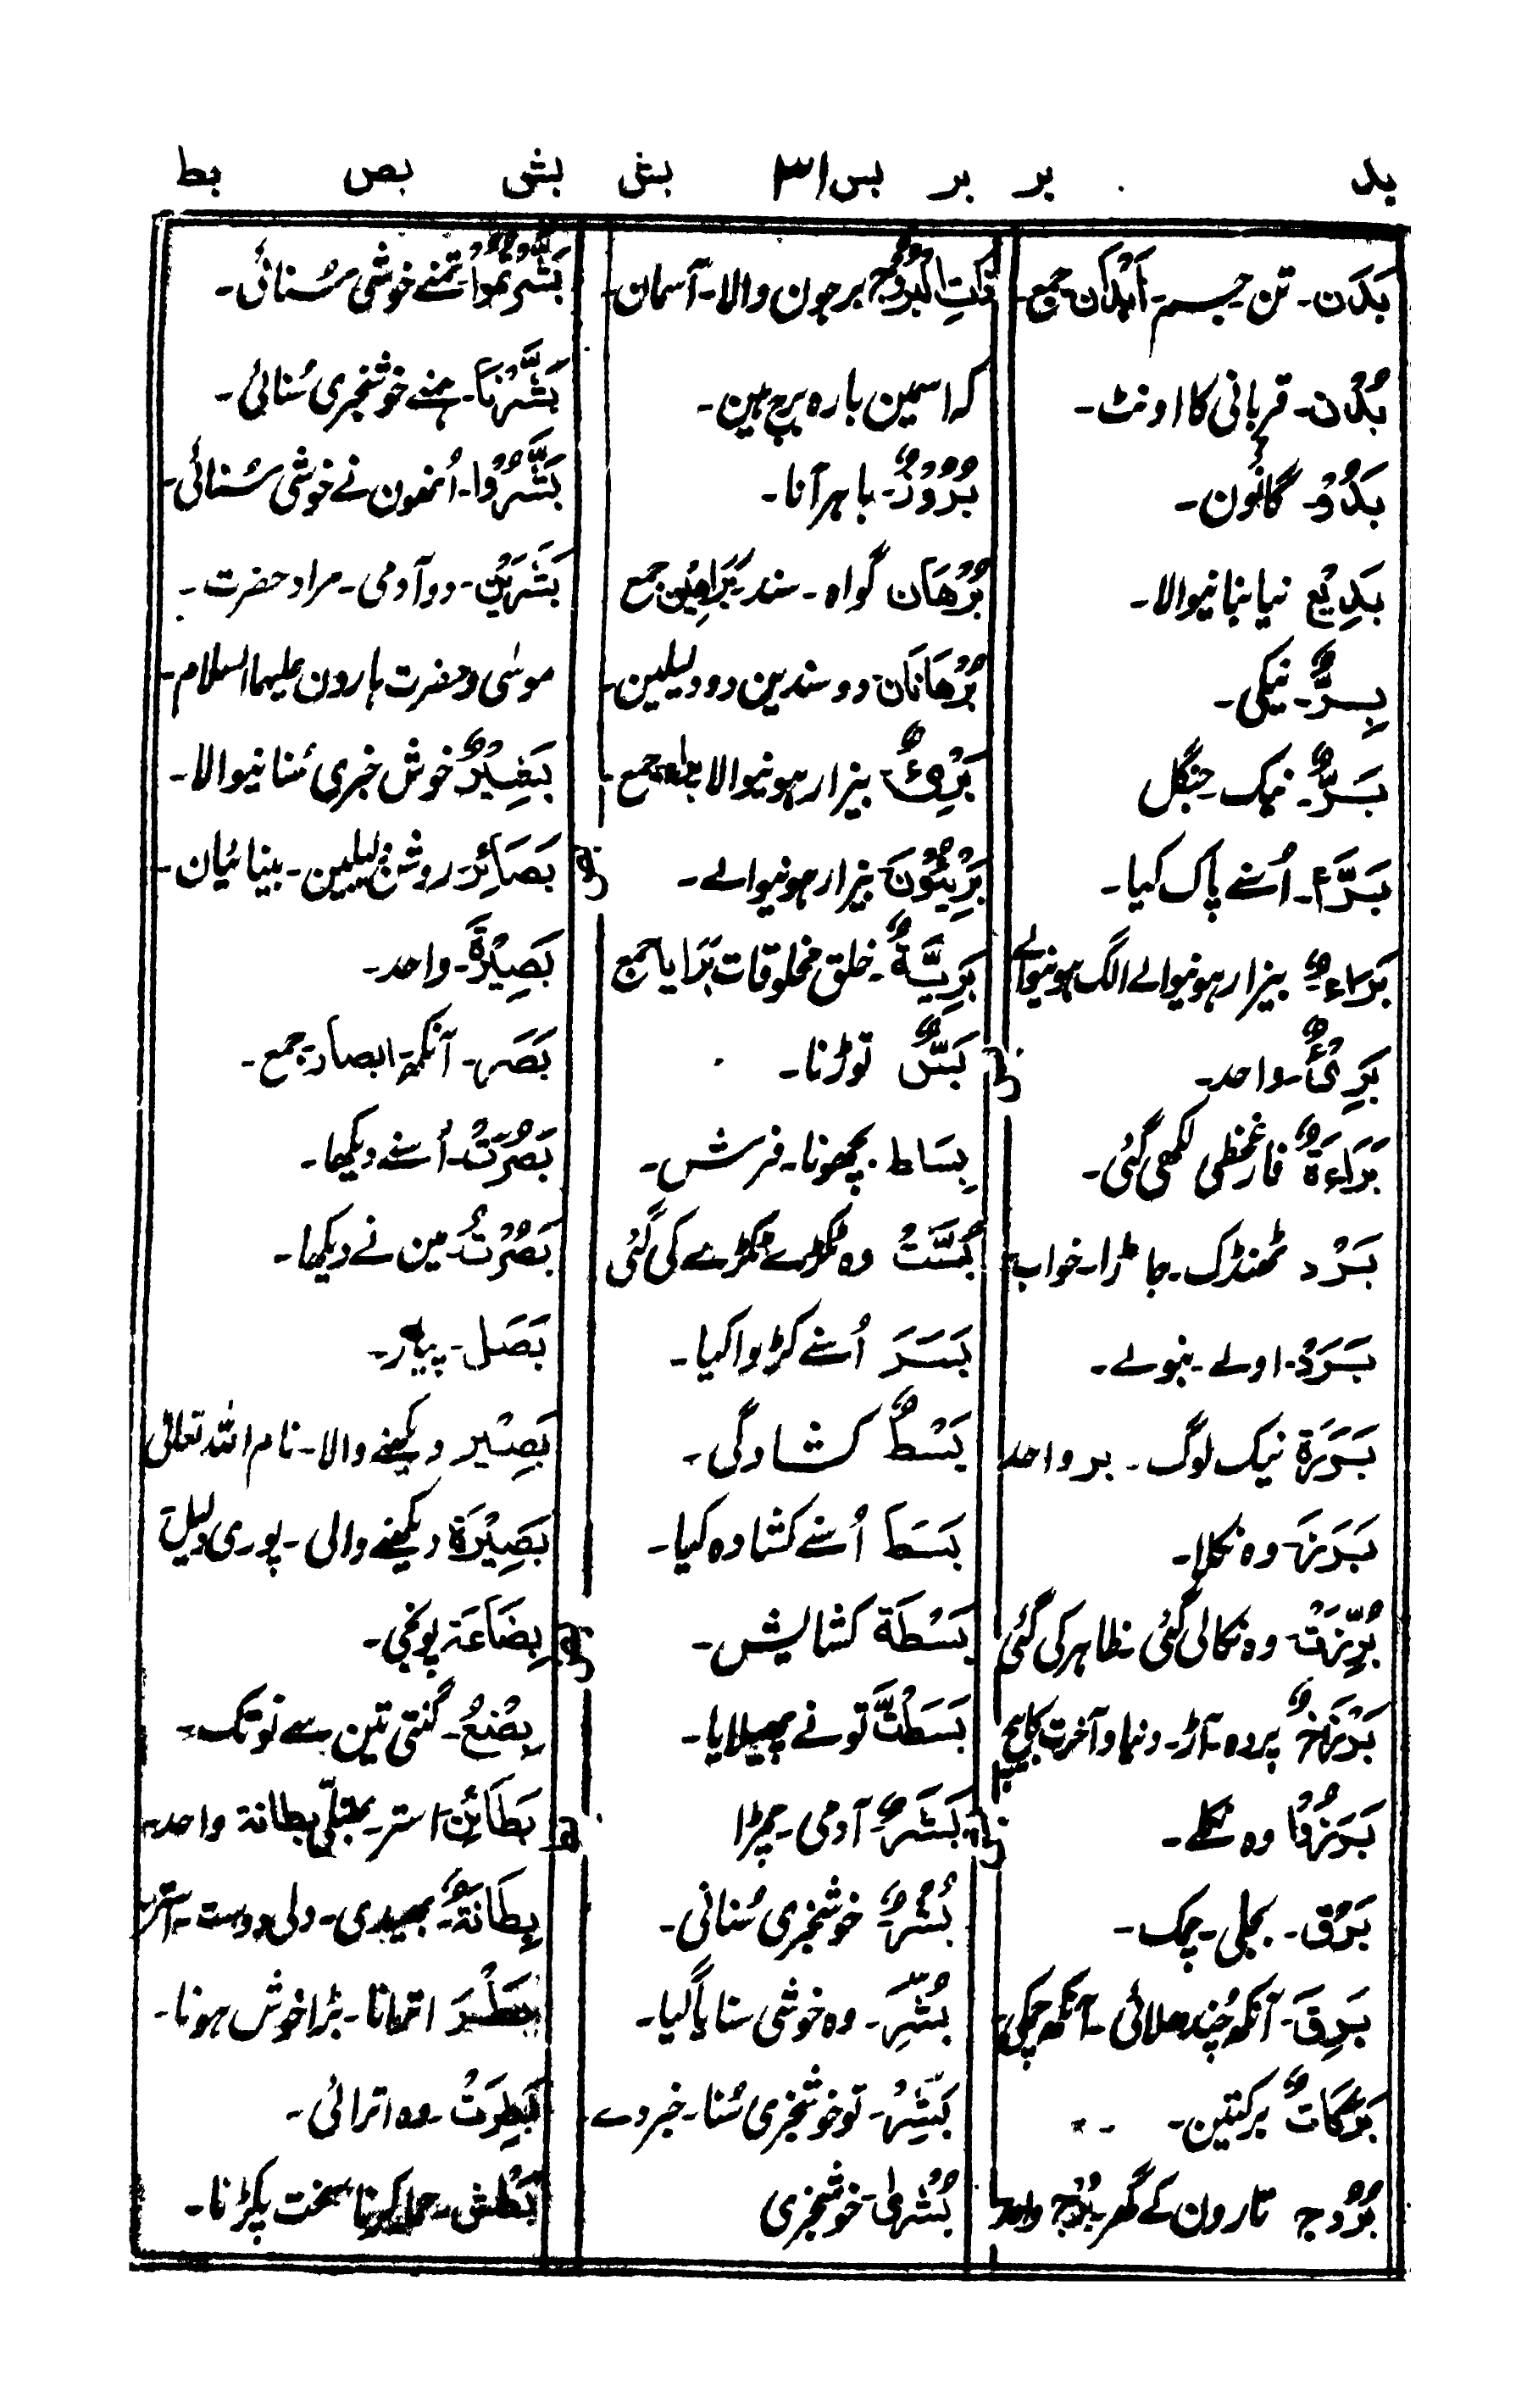 بد بر بر بس ٣١ بش بش بص بط
بَدَن۔ تن جسم۔ اَبْدَان جمع۔
بُدْن۔ قربانی کا اونٹ۔
بَدْوٌ۔ گانٶن۔
بَدِیْع نیا بنانیوالا۔
بِرٌّ۔ نیکی۔
بَرٌّ۔ نیک۔ جنگل
بَرَّءَ۔ اُسنے پاک کیا۔
بُرَءٰٓؤٌ بیزار ہونیوالے الگ ہونیوالے
بَرِیْٓئٌ۔ واحد۔
بَرَاءَةٌ فارغخطی لکھی گئی۔
بَرْد ٹھنڈک۔ جاڑا۔ خواب
بَرَدْ۔ اولے۔ بنولے۔
بَرَرَة نیک لوگ۔ بر واحد
بَرَزَ۔ وہ نکلا۔
بُرِّزَتْ۔ وہ نکالی گئی ظاہر کی گئی
بَرْزَخٌ پردہ۔ آڑ۔ دنیا و آخرت کا بیچ
بَرَزُوْا وہ نکلے۔
بَرْق۔ بجلی۔ چمک۔
بَرِقَ۔ آنکھ چُندھلائی۔ آنکھ چمکی
بَرَکَاتٌ برکتین۔
بُرُوْج تارون کے گھر۔ بُرْج واحد
ذَاتِ الْبُرُوْجِ برجون والا۔ آسمان۔
کہ اسمین بارہ برج ہین۔
بُرُوْزٌ۔ باہر آنا۔
بُرْهَان گواہ۔ سند۔ بَرَاهِیْن جمع
بُرْهَانَان دو سندین دو دلیلین۔
بَرِیْٓئٌ بیزار ہونیوالا جمع۔
بَرِیْئُوْنَ بیزار ہونیوالے۔
بَرِیَّةٌ۔ خلق مخلوقات بَرَایَا جمع
بَسٌّ توڑنا۔
بِسَاط۔ بچھونا۔ فرش۔
بُسَّتْ وہ ٹکڑے ٹکڑے کی گئی
بَسَرَ اُسنے کڑوا کیا۔
بَسْطٌ کشادگی۔
بَسَطَ اُسنے کشادہ کیا۔
بَسْطَة کشایش۔
بَسَطْتَّ تو نے پھیلایا۔
بَشَرٌ۔ آدمی۔ چمڑا
بُشْرٌ۔ خوشخبری سُنانی۔
بُشِّرَ۔ وہ خوشی سنایا گیا۔
بَشِّرْ۔ تو خوشخبری سُنا۔ خبر دے۔
بُشْرٰی۔ خوشخبری
بَشَّرْتُمُوْا۔ تمنے خوشی سُنائی۔
بَشَّرْنَا۔ ہمنے خوشخبری سُنائی۔
بَشَّرُوْا۔ اُنھون نے خوشی سُنائی۔
بَشَرَیْن۔ دو آدمی۔ مراد حضرت۔
موسٰی و حضرت ہارون علیہما السلام۔
بَشِیْرٌ خوش خبری سُنانیوالا۔
بَصَائِر۔ روشن دلیلین۔ بینائیان۔
بَصِیْرَةٌ۔ واحد۔
بَصَر۔ آنکھ۔ ابصار۔ جمع۔
بَصُرَتْ۔ اُسنے دیکھا۔
بَصُرْتُ۔ مین نے دیکھا۔
بَصَل۔ پیاز۔
بَصِیْر دیکھنے والا۔ نام اللہ تعالٰی
بَصِیْرَة دیکھنے والی۔ پوری دلیل
بِضَاعَة پونجی۔
بِضْعٌ۔ گنتی تین سے نو تک۔
بَطَآئِن۔ استر۔ بھتلی بطانة واحد۔
بِطَانَةٌ۔ بھیدی۔ دلی دوست۔ استر
بَطَرَ اترانا۔ بڑا خوش ہونا۔
بَطِرَتْ۔ وہ اترائی۔
بَطْش۔ حملہ کرنا سخت پکڑنا۔